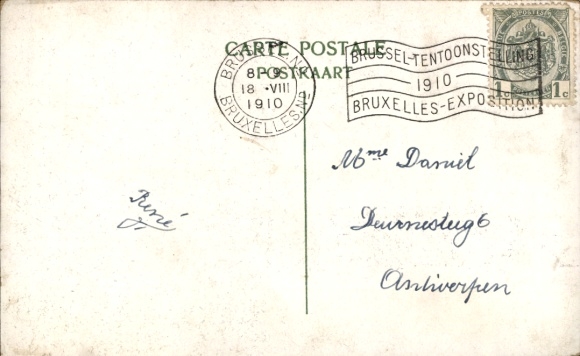 CARTE POSTALE
POSTKAART
BRUSSEL.Nd
8-9
18 ·VIII
1910
BRUXELLES.Nd
BRUSSEL-TENTOONSTELLING
1910
BRUXELLES-EXPOSITION
1c 1c
Mme Daniël
Deurnesteeg 6
Antwerpen
René